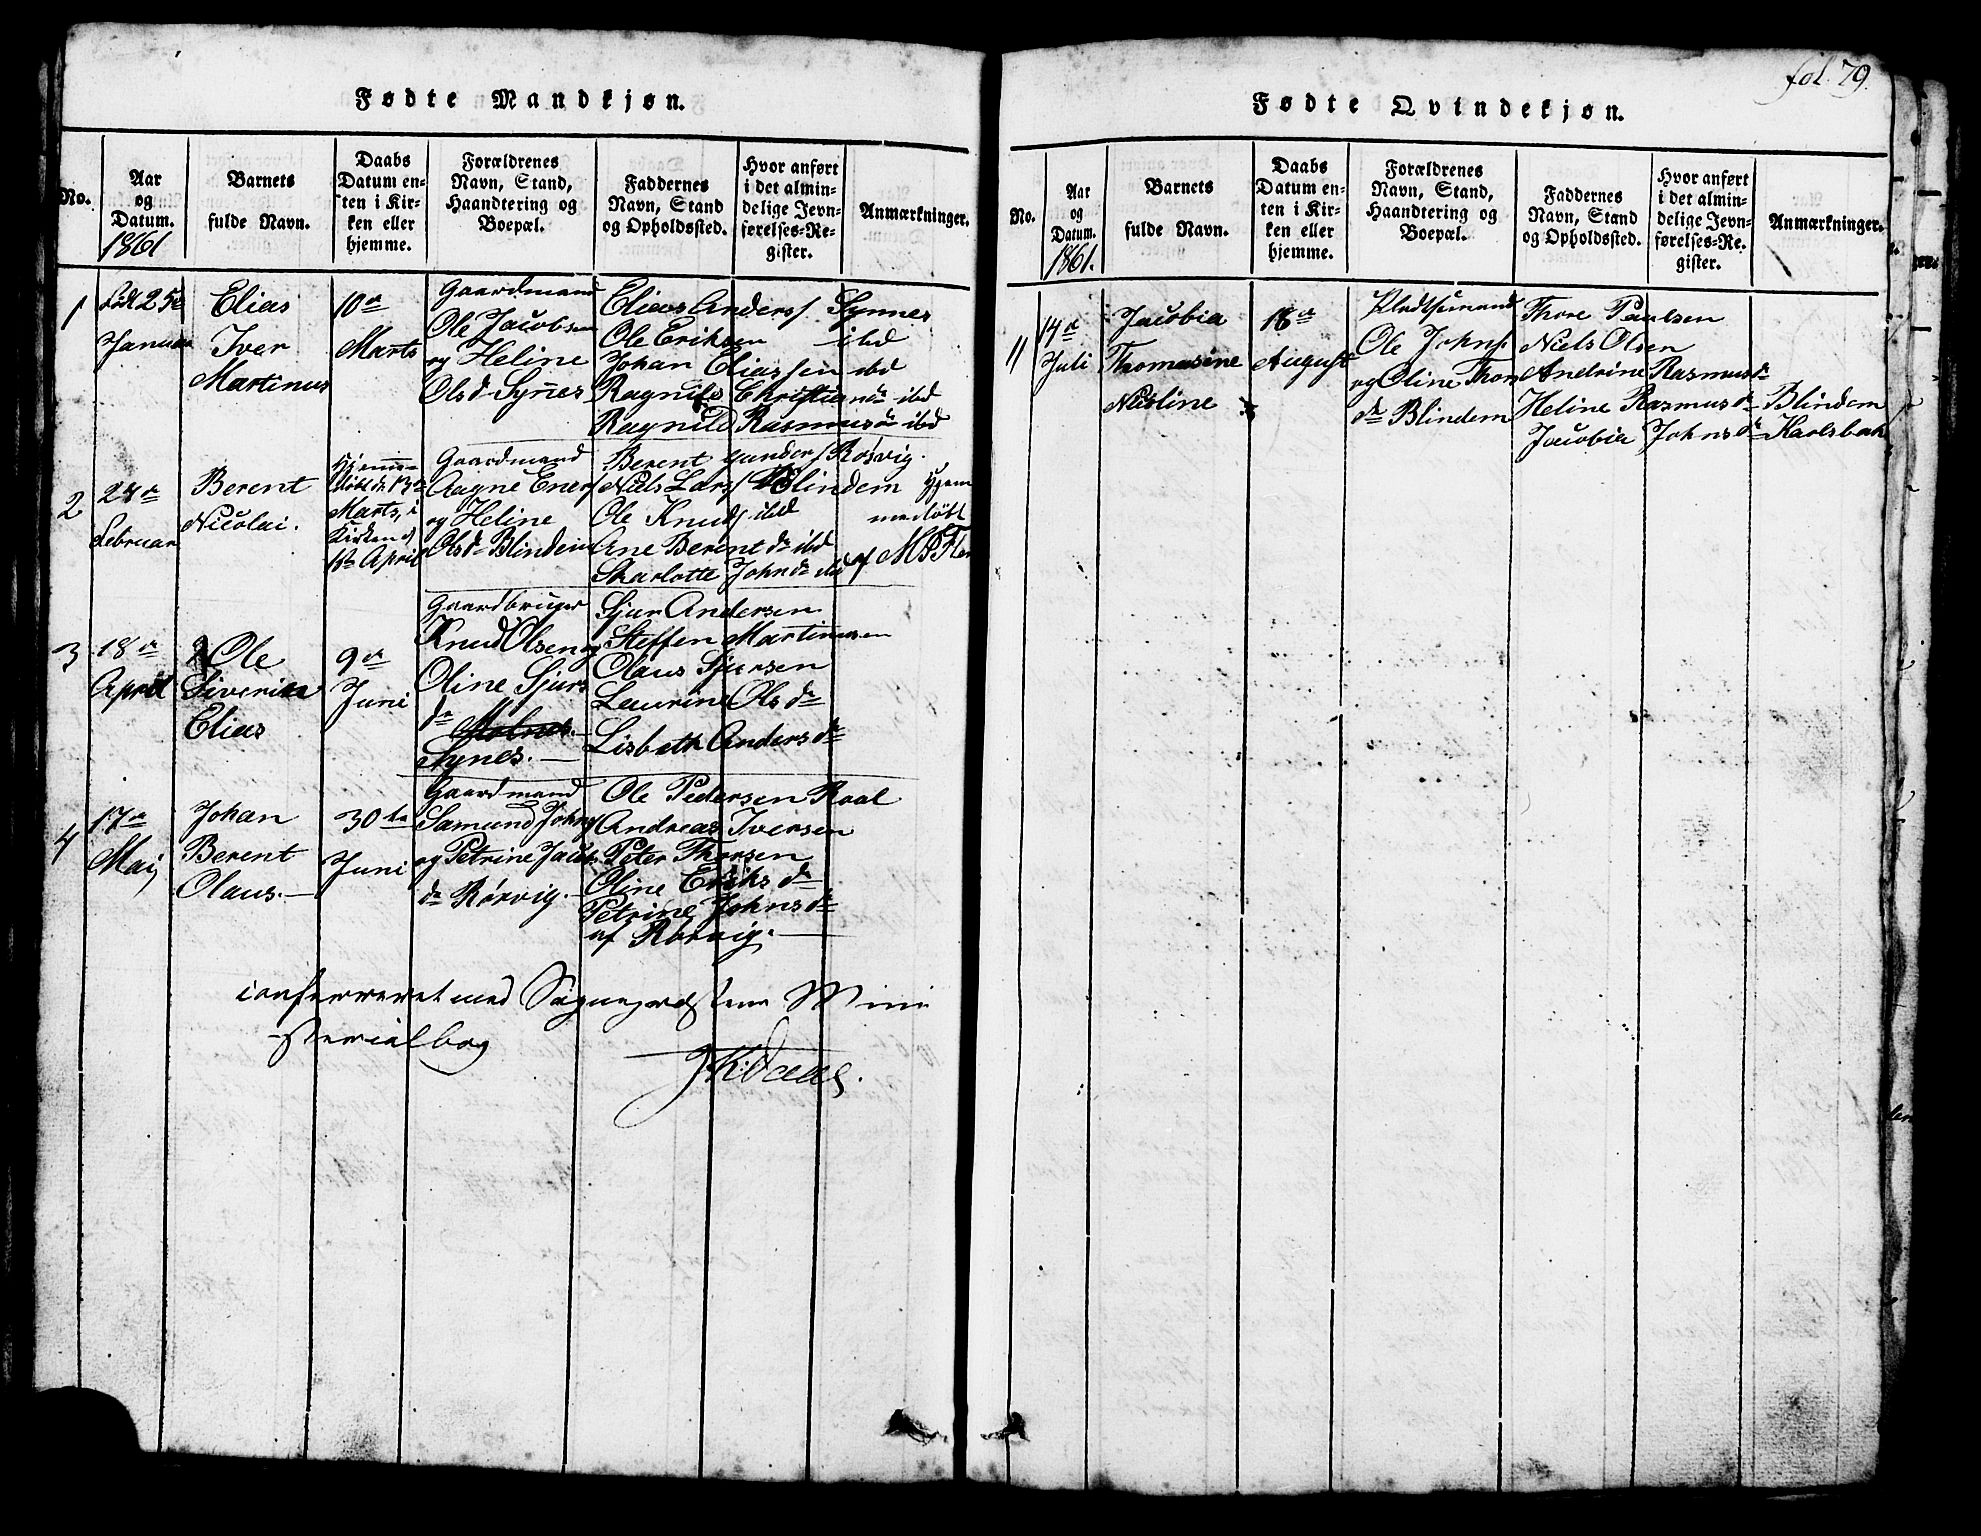 fol. 79.
Fødte Mandkjøn.
No.
Aar
og
Datum.
1861
Barnets
fulde Navn.
Daabs
Datum en-
ten i Kir-
ken eller
hjemme.
Forældrenes
Navn, Stand,
Haandtering og
Boepæl.
Faddernes
Navn, Stand
og Opholdssted.
Hvor anført
i det almin-
delige Jevn-
førelses-Re-
gister.
Anmærkninger.
1
født 25de
Januar
Elias
Iver
Martinus
10de
Marts
Gaardmand
Ole Jacobsen
og Heline
Olsdr Synes
Elias Anders/ Synnes
Ole Eriksen ibd
Johan Eliassen ibd
Ragnild Christian ibd
Ragnild Rasmus ibd
2
Februar
Berent
Nicolai.
Hjemme-
døbt d. 13de
Marts, i
Kirken d
1ste April
Gaardmand
Aagne Ener/
og Heline
Olsdr Blindem
Berent Gunder/ Rørvig.
Niels Lars/ Blindem
Ole Knuds/ ibd
Ane Berentdr ibd
Sharlotte Johndr ibd
Hjem
medøbt
af M. P. Flem
3
18de
April
Ole
Siverin
Elias
9de
Juni
Gaardbruger
Knud Olsen og
Oline Sjurs
dr
Synes.
Sjur Andersen
Steffen Martinusen
Olaus Sjursen
Laurine Olsdr
Lisbeth Andersdr
4
17de
Maij
Johan
Berent
Olaus.
30te
Juni
Gaardmand
Samund Johns/
og Petrine Jacobs
dr Rørvig.
Ole Pedersen Roal
Andreas Iversen
Peter Thorsen
Oline Eriksdr
Petrine Johnsdr
af Rørvig.
conferreret med Sognepræstens Mini
sterialbog
Fødte Qvindekjøn.
No.
Aar
og
Datum.
1861.
Barnets
fulde Navn.
Daabs
Datum en-
ten i Kir-
ken eller
hjemme.
Forældrenes
Navn, Stand,
Haandtering og
Boepæl.
Faddernes
Navn, Stand
og Opholdssted.
Hvor anført
i det almin-
delige Jevn-
førelses-Re-
gister.
Anmærkninger.
11
14de
Juli
Jacobia
Thomasine
Nicoline
18de
August
Pladtsemand
Ole Johns/
og Oline Thors
dr Blindem
Thore Paulsen
Niels Olsen
Andrine Rasmusdr
Heline Rasmusdr Blindem
Jacobia Johnsdr Karlsbak